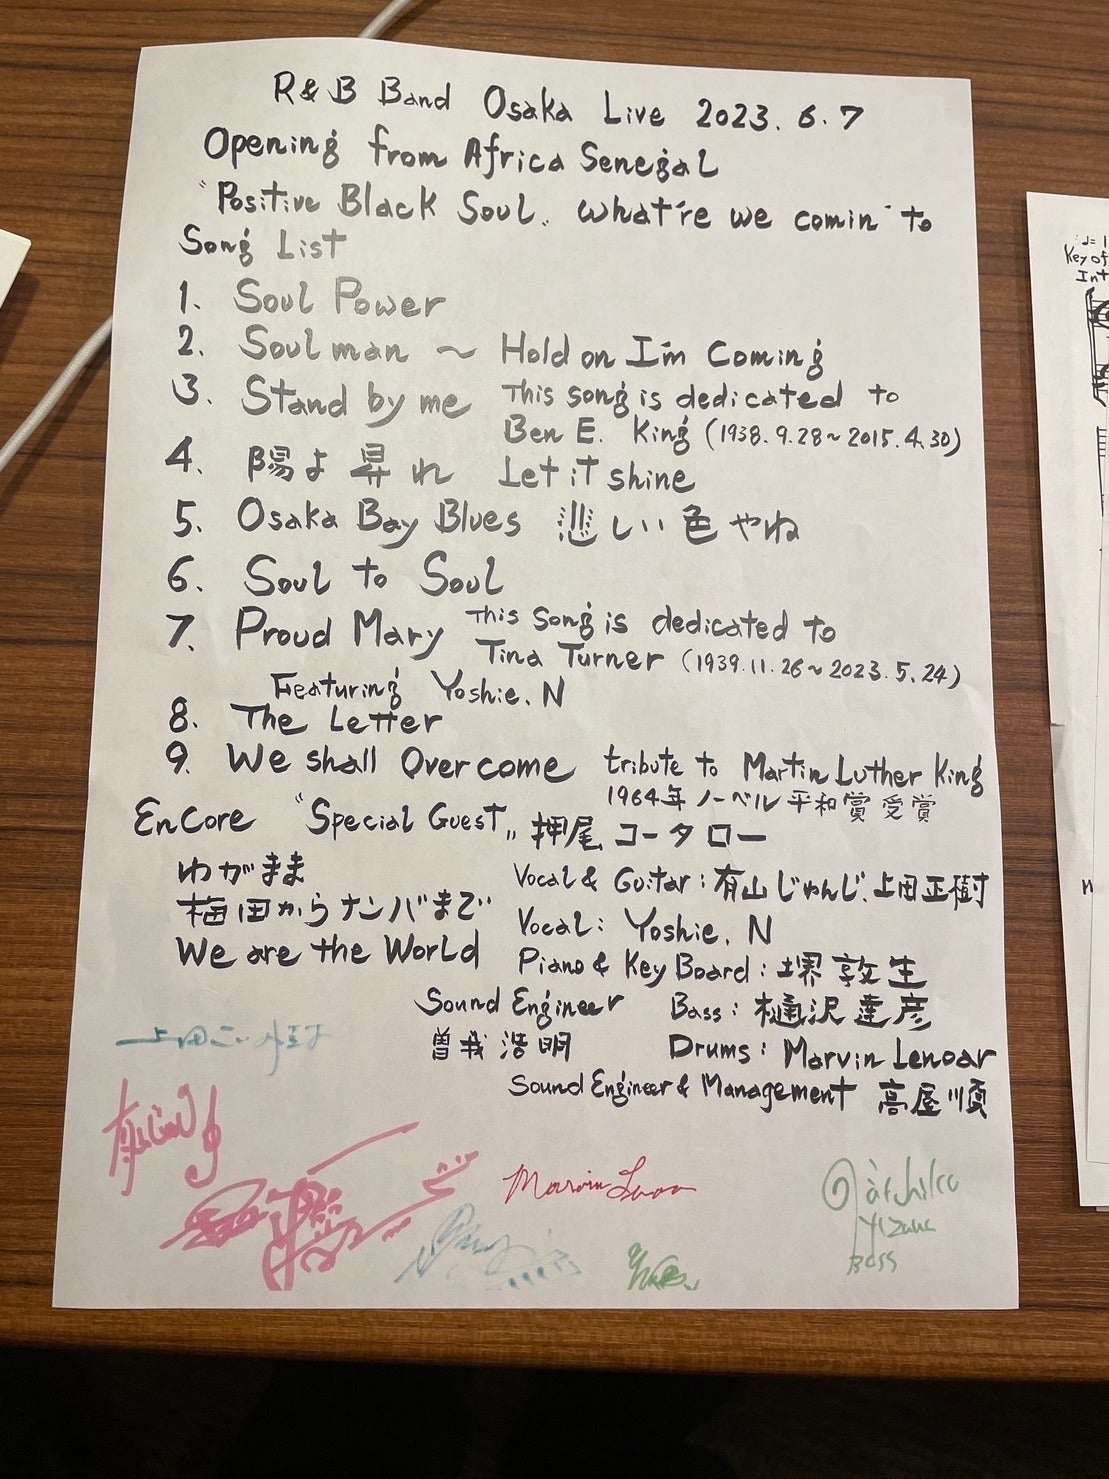 R&B Band Osaka Live 2023.6.7
Opening from Africa Senegal
"Positive Black Soul. What're we comin' to
Song List
1. Soul Power
2. Soul man ～ Hold on I'm Coming
3. Stand by me This song is dedicated to
Ben E. King (1938.9.28～2015.4.30)
4. 陽よ昇れ Let it shine
5. Osaka Bay Blues 悲しい色やね
6. Soul to Soul
7. Proud Mary This song is dedicated to
Tina Turner (1939.11.26～2023.5.24)
Featuring Yoshie.N
8. The Letter
9. We shall Overcome tribute to Martin Luther King
1964年 ノーベル平和賞受賞
Encore "Special Guest" 押尾コータロー
わがまま
梅田からナンバまで
We are the World
Vocal & Guitar: 有山じゅんじ.上田正樹
Vocal: Yoshie.N
Piano & KeyBoard: 堺敦生
Sound Engineer Bass: 樋沢達彦
曽我浩明 Drums: Marvin Lenoar
Sound Engineer & Management 高屋順
Bass